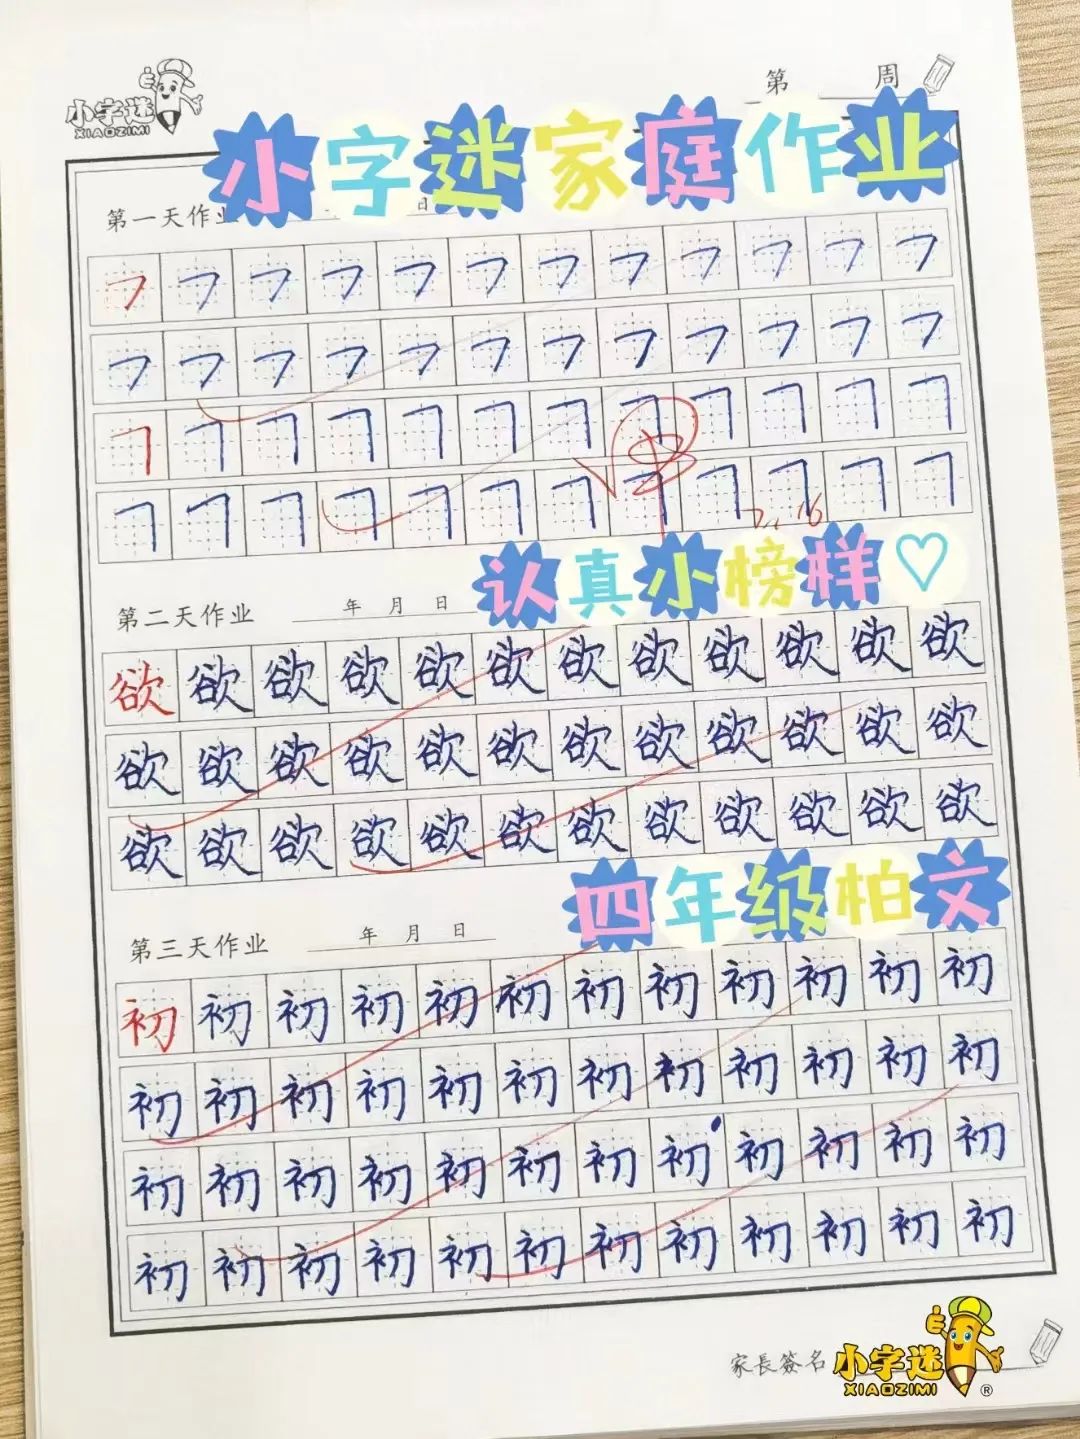 小字迷
XIAOZIMI
第 周
小字迷家庭作业
第一天作业 日
㇇㇇㇇㇇㇇㇇㇇㇇㇇㇇㇇㇇
㇇㇇㇇㇇㇇㇇㇇㇇㇇㇇㇇㇇
㇕㇕㇕㇕㇕㇕㇕㇕㇕㇕㇕㇕
㇕㇕㇕㇕㇕㇕㇕㇕㇕㇕㇕㇕
认真小榜样♡
第二天作业 年 月 日
欲欲欲欲欲欲欲欲欲欲欲欲
欲欲欲欲欲欲欲欲欲欲欲欲
欲欲欲欲欲欲欲欲欲欲欲欲
四年级柏文
第三天作业 年 月 日
初初初初初初初初初初初初
初初初初初初初初初初初初
初初初初初初初初初初初初
初初初初初初初初初初初初
家長簽名
小字迷
XIAOZIMI ®